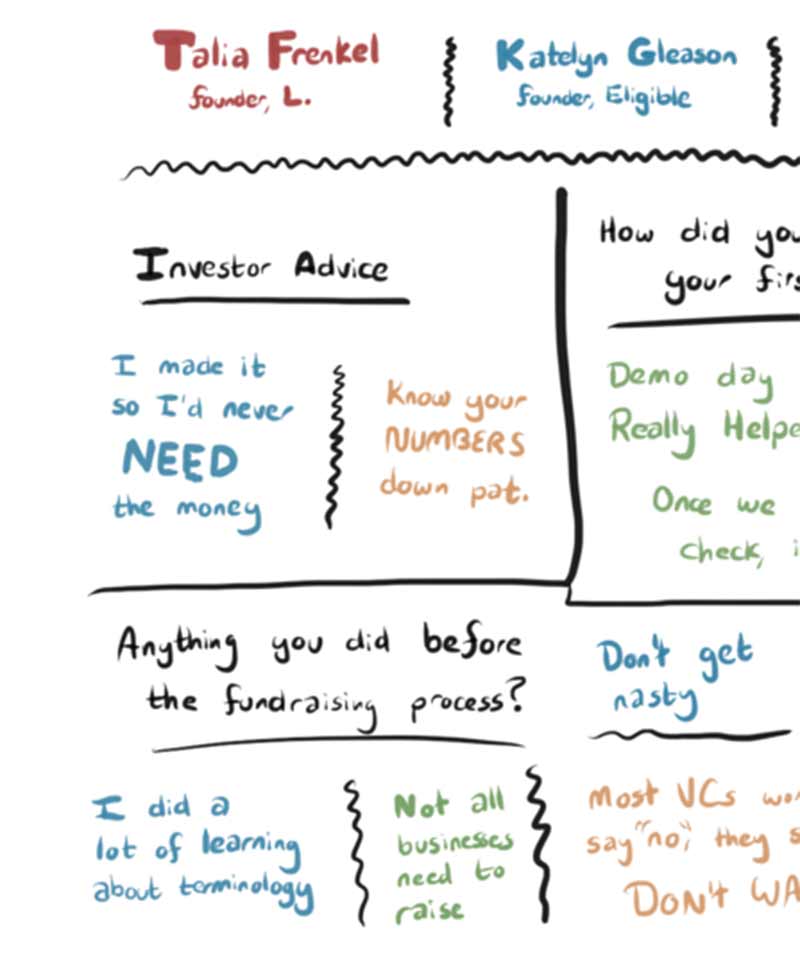 Talia Frenkel
founder, L.
Katelyn Gleason
founder, Eligible
Investor Advice
I made it
so I'd never
NEED
the money
Know your
NUMBERS
down pat.
How did you
your firs
Demo day
Really Helpe
Once we
check, i
Anything you did before
the fundraising process?
I did a
lot of learning
about terminology
Not all
businesses
need to
raise
Don't get
nasty
Most VCs won
say "no", they s
DON't WA